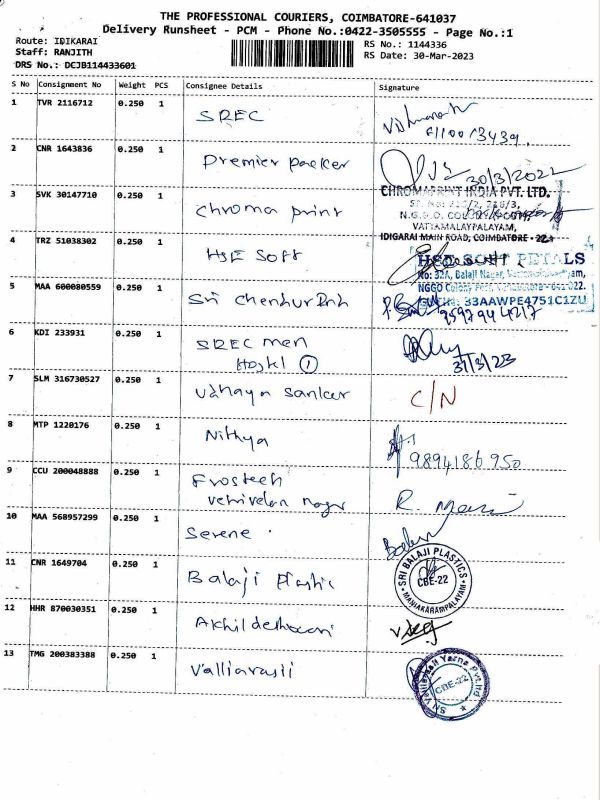 THE PROFESSIONAL COURIERS, COIMBATORE-641037
Delivery Runsheet - PCM - Phone No.:0422-3505555 - Page No.:1
Route: IDIKARAI
Staff: RANJITH
DRS No.: DCJB114433601
RS No.: 1144336
RS Date: 30-Mar-2023
S No Consignment No Weight PCS Consignee Details Signature
1 TVR 2116712 0.250 1 SREC
2 CNR 1643836 0.250 1 Premier packer 30/3/2022
3 SVK 30147710 0.250 1 Chroma print
CHROMAPRINT INDIA PVT. LTD.
VATTAMALAYPALAYAM,
IDIGARAI MAIN ROAD, COIMBATORE - 22
4 TRZ 51038302 0.250 1 HSE Soft
No: 32A, Balaji Nagar,
NGGO Colony
GSTIN: 33AAWPE4751C1ZU
5 MAA 600080559 0.250 1 Sri 9597944217
6 KDI 233931 0.250 1 SREC men
Hostel 1 31/3/23
7 SLM 316730527 0.250 1 Udhaya Sanker C/N
8 MTP 1220176 0.250 1 Nithya 9894186950
9 CCU 200048888 0.250 1 Frostech
vetrivelan nagar R. Mani
10 MAA 568957299 0.250 1 Serene
11 CNR 1649704 0.250 1 Balaji Plastic
SRI BALAJI PLASTICS
CBE-22
MANIAKARAMPALAYAM
12 HHR 870030351 0.250 1
13 TMG 200383388 0.250 1 Valliarasii
Yarns Pvt.Ltd
CBE-22